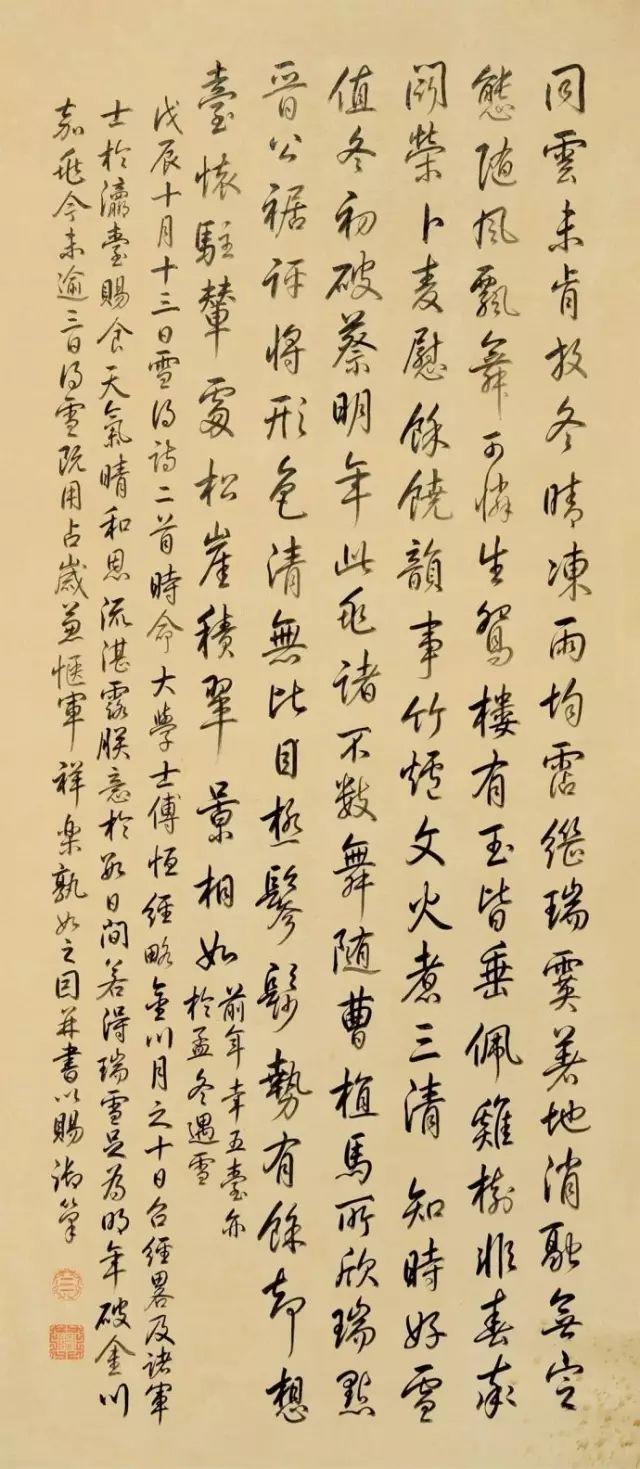 同雲未肯放冬晴凍雨均霑繼瑞霙著地消融無定
態隨風飄舞可憐生鴛樓有玉皆垂佩雞樹非春亦
鬭榮卜麦慰餘饒韻事竹爐文火煮三清 知時好雪
值冬初破蔡明年此兆諸不數舞随曹植馬所欣瑞點
晉公裾評将形色清無比目極鬖髿勢有餘却想
臺懷駐輦處松崖積翠景相如
前年幸五臺亦
於孟冬遇雪
戊辰十月十三日雪得詩二首時命大學士傅恒經略金川月之十日召經畧及諸軍
士於瀛臺賜食天氣晴和恩流湛露朕意於數日間若得瑞雪足為明年破金川
嘉兆今未逾三日得雪既用占歲並愜軍祥樂孰如之因并書以賜御筆